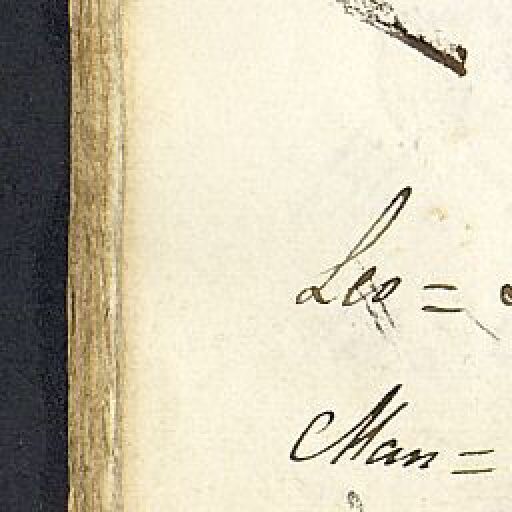 Leo=
Man=